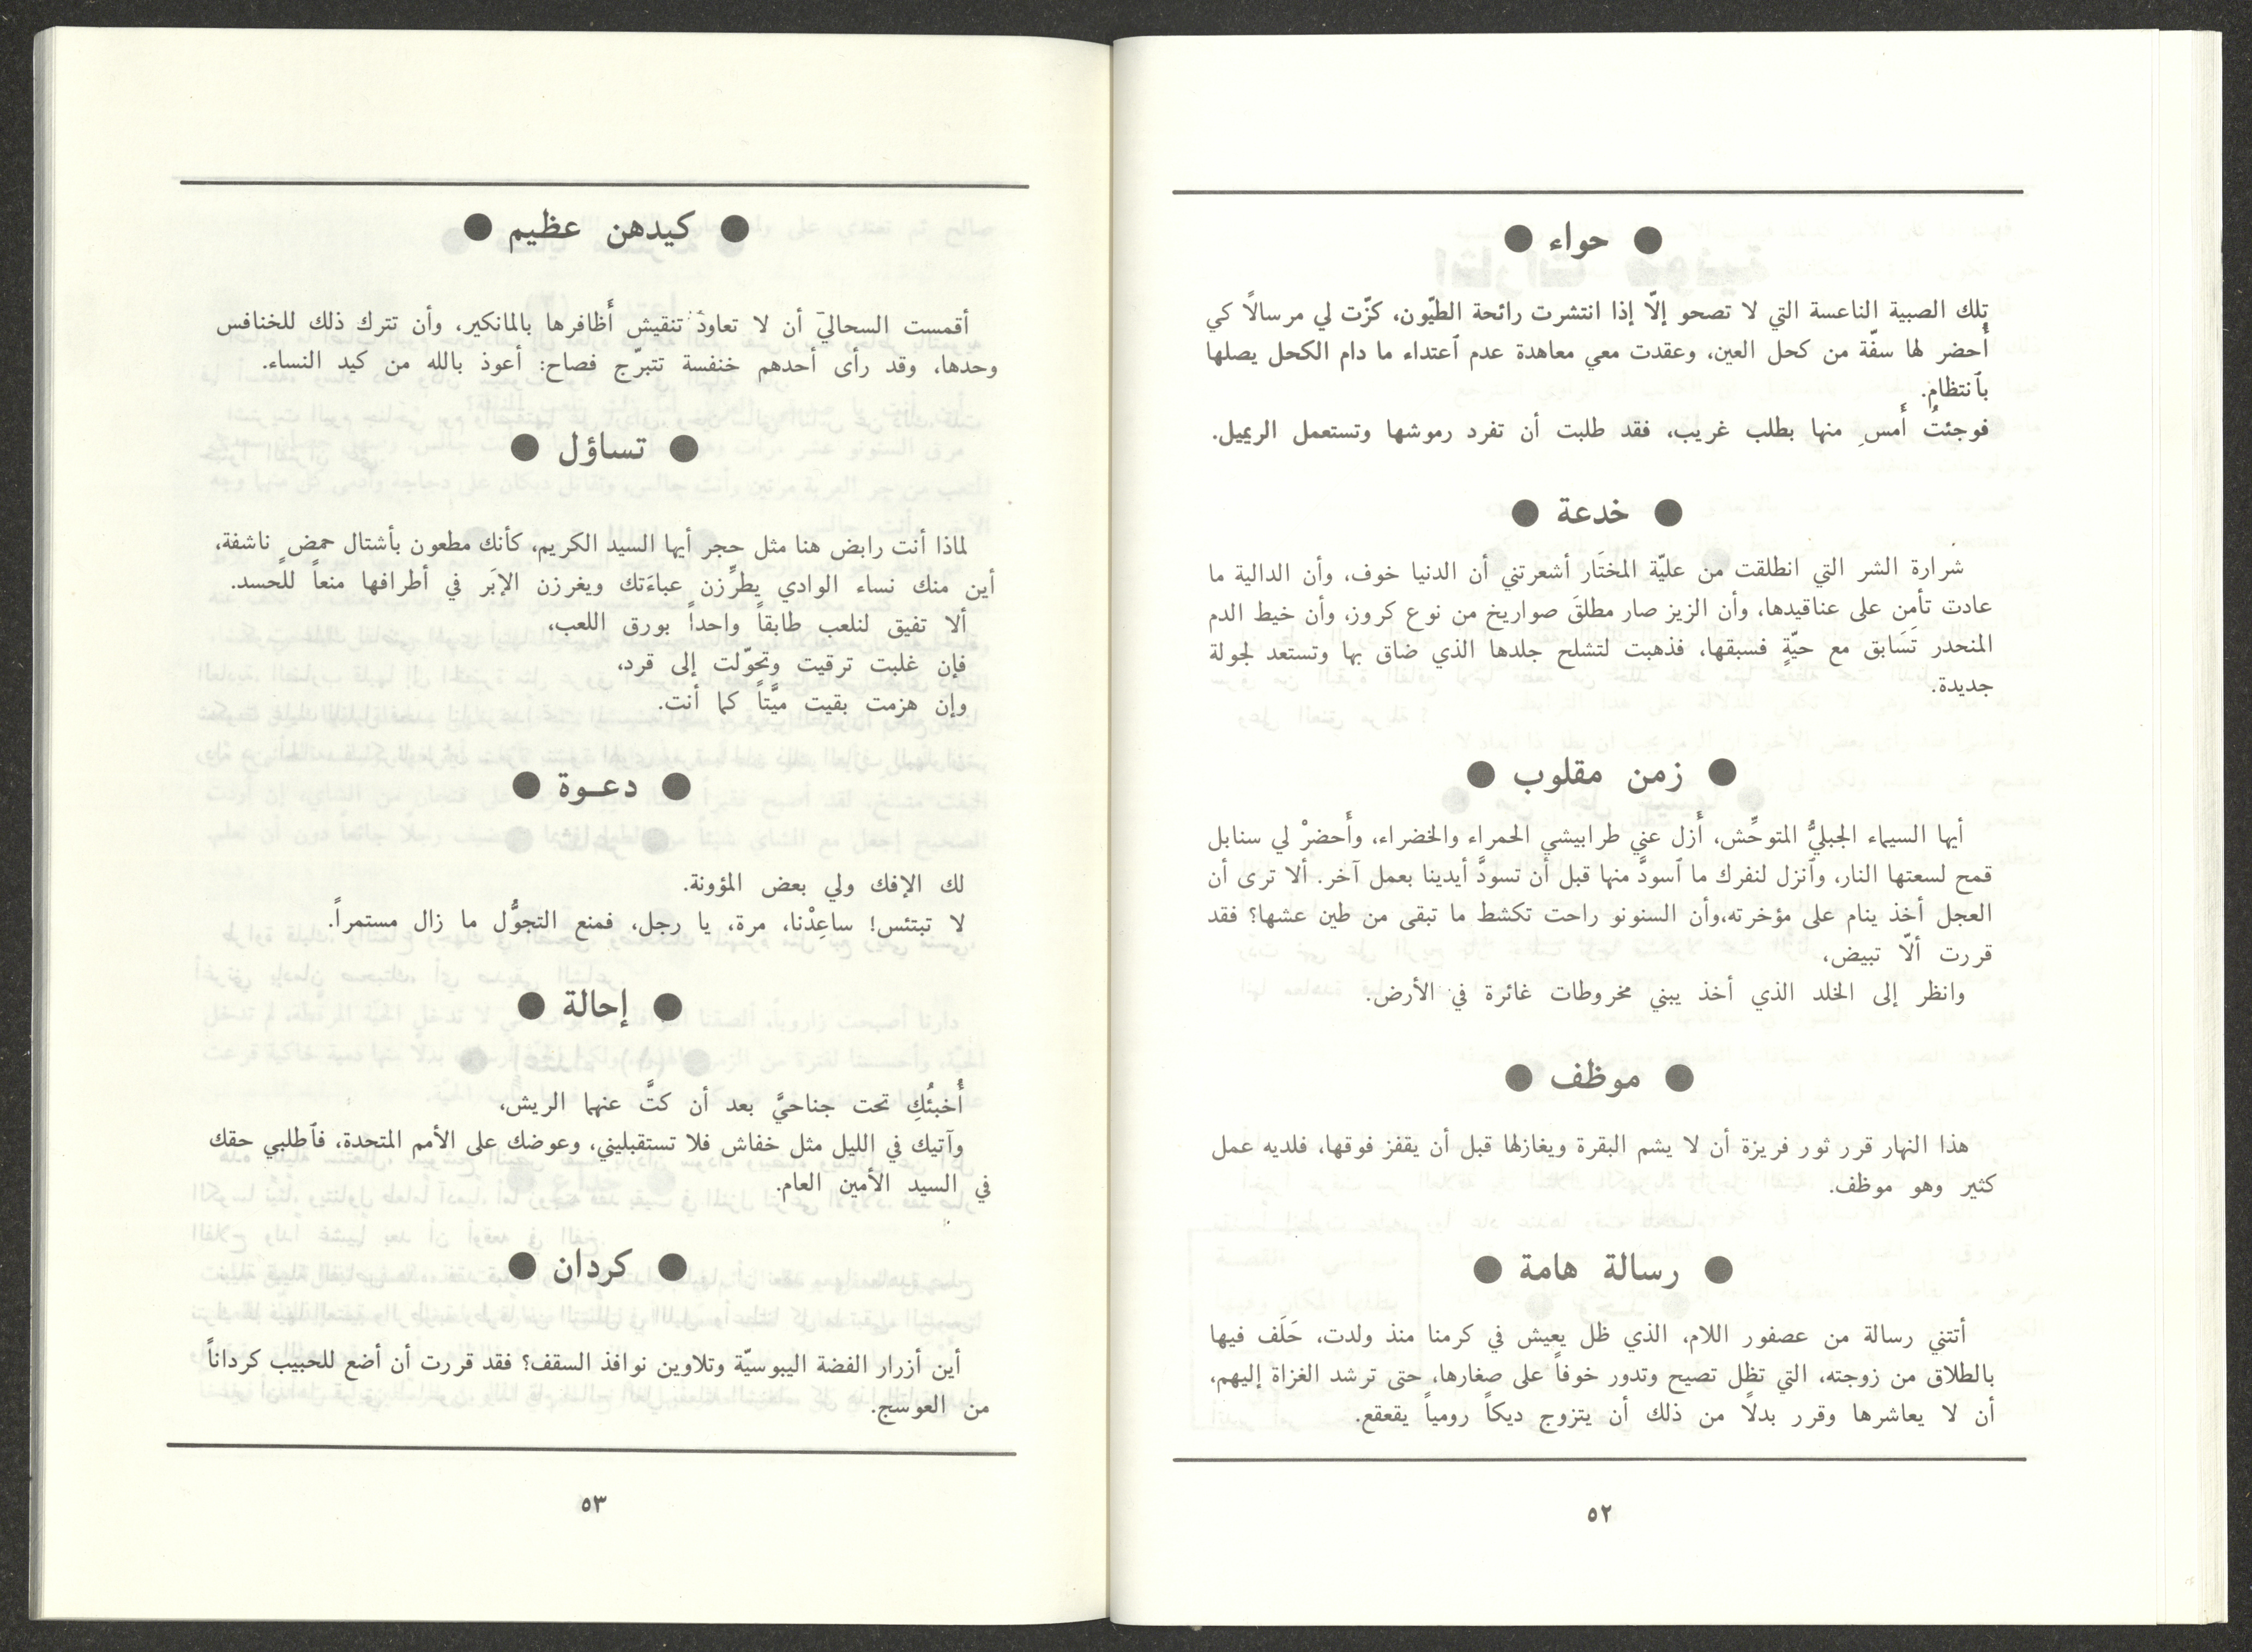 ● حواء ●
تلك الصبية الناعسة التي لا تصحو إلّا إذا انتشرت رائحة الطيّون، كزّت لي مرسالًا كي
أُحضر لها سفّة من كحل العين، وعقدت معي معاهدة عدم ٱعتداء ما دام الكحل يصلها
بٱنتظام.
فوجئتُ أَمسِ منها بطلب غريب، فقد طلبت أن تفرد رموشها وتستعمل الريميل.
● خدعة ●
شرارة الشر التي انطلقت من عليّة المختَار أشعرتني أن الدنيا خوف، وأن الدالية ما
عادت تأمن على عناقيدها، وأن الزيز صار مطلقَ صواريخ من نوع كروز، وأن خيط الدم
المنحدر تَسَابق مع حيّةٍ فسبقها، فذهبت لتشلح جلدها الذي ضاق بها وتستعد لجولة
جديدة.
● زمن مقلوب ●
أيها السيماء الجبليُّ المتوحِّش، أَزل عني طرابيشي الحمراء والخضراء، وأَحضرْ لي سنابل
قمح لسعتها النار، وٱنزل لنفرك ما ٱسودَّ منها قبل أن تسودَّ أيدينا بعمل آخر. ألا ترى أن
العجل أخذ ينام على مؤخرته،وأن السنونو راحت تكشط ما تبقى من طين عشها؟ فقد
قررت ألّا تبيض،
وانظر إلى الخلد الذي أخذ يبني مخروطات غائرة في الأرض.
● موظف ●
هذا النهار قرر ثور فريزة أن لا يشم البقرة ويغازلها قبل أن يقفز فوقها، فلديه عمل
كثير وهو موظف.
● رسالة هامة ●
أتتني رسالة من عصفور اللام، الذي ظل يعيش في كرمنا منذ ولدت، حَلَف فيها
بالطلاق من زوجته، التي تظل تصيح وتدور خوفاً على صغارها، حتى ترشد الغزاة إليهم،
أن لا يعاشرها وقرر بدلًا من ذلك أن يتزوج ديكاً رومياً يقعقع.
٥٢
● كيدهن عظيم ●
أقمست السحالي أن لا تعاود تنقيش أَظافرها بالمانكير، وأن تترك ذلك للخنافس
وحدها، وقد رأى أحدهم خنفسة تتبرّج فصاح: أعوذ بالله من كيد النساء.
● تساؤل ●
لماذا أنت رابض هنا مثل حجر أيها السيد الكريم، كأنك مطعون بأشتال حمضٍ ناشفة،
أين منك نساء الوادي يطرِّزن عباءَتك ويغرزن الإبَر في أطرافها منعاً للحسد.
ألا تفيق لنلعب طابقاً واحداً بورق اللعب،
فإن غلبت ترقيت وتحوّلت إلى قرد،
وإن هزمت بقيت ميَّتاً كما أنت.
● دعـوة ●
لك الإفك ولي بعض المؤونة.
لا تبتئس! ساعِدْنا، مرة، يا رجل، فمنع التجوُّل ما زال مستمراً.
● إحالة ●
أُخبئُكِ تحت جناحيَّ بعد أن كتَّ عنهما الريش،
وآتيك في الليل مثل خفاش فلا تستقبليني، وعوضك على الأمم المتحدة، فٱطلبي حقك
في السيد الأمين العام.
● كردان ●
أين أزرار الفضة اليبوسيّة وتلاوين نوافذ السقف؟ فقد قررت أن أضع للحبيب كرداناً
من العوسج.
٥٣